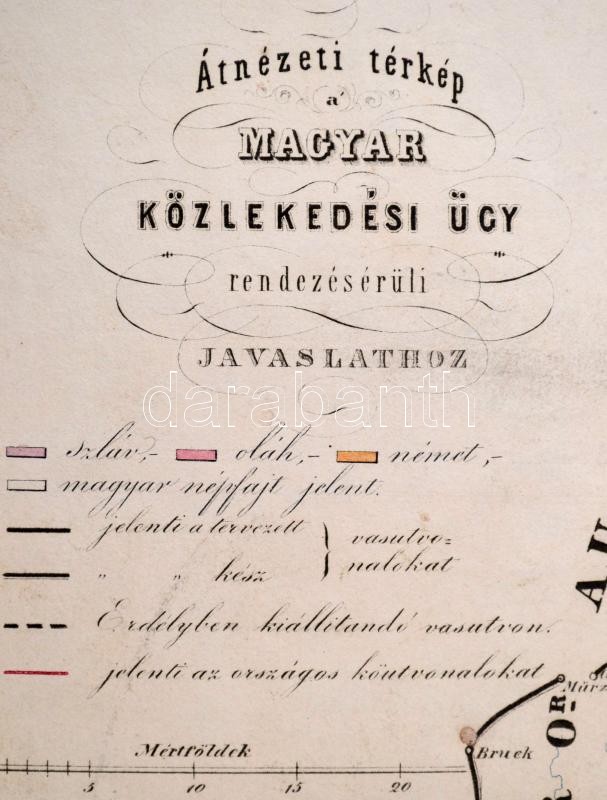 Átnézeti térkép
a'
MAGYAR
KÖZLEKEDÉSI ÜGY
rendezésérüli
JAVASLATHOZ
darabanth
szláv,- oláh,- német,-
magyar népfajt jelent.
jelenti a tervezett
" " kész
vasutvo-
nalokat
Erdélyben kiállitandó vasutvon.
jelenti az országos köutvonalokat
Mürz
Mértföldek
Bruck
5 10 15 20
AU
OR